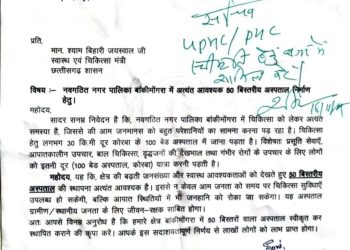 सचिव
UPHC/PHC
स्वीकृति हेतु बजट में
शामिल करें।
प्रति,
मान. श्याम बिहारी जयस्वाल जी
स्वास्थ एवं चिकित्सा मंत्री
छत्तीसगढ़ शासन
विषय :- नवगठित नगर पालिका बांकीमोंगरा में अत्यंत आवश्यक 50 बिस्तरीय अस्पताल निर्माण
हेतु।
महोदय,
सादर सनम्र निवेदन है कि, नवगठित नगर पालिका बांकीमोंगरा में चिकित्सा को लेकर अत्यंत
समस्या है, जिससे की आम जनमानस को बहुत परेशानियों का सामना करना पड़ रहा है। चिकित्सा
हेतु लगभग 30 कि.मी दूर कोरबा के 100 बेड अस्पताल में जाना पड़ता है। विशेषतः प्रसूति सेवाएँ,
आपातकालीन उपचार, बाल चिकित्सा, वृद्धजनों की देखभाल तथा गंभीर रोगों के उपचार के लिए लोगों
को इतनी दूर (100 बेड अस्पताल, कोरबा) यात्रा करनी पड़ती है।
महोदय, यह कि, क्षेत्र की बढ़ती जनसंख्या और स्वास्थ्य आवश्यकताओं को देखते हुए 50 बिस्तरीय
अस्पताल की स्थापना अत्यंत आवश्यक है। इससे न केवल आम जनता को समय पर चिकित्सा सुविधाएँ
उपलब्ध हो सकेंगी, बल्कि आपात स्थितियों में भी जनहानि को रोका जा सकेगा। यह अस्पताल
ग्रामीण/स्थानीय जनता के लिए जीवन-रक्षक साबित होगा।
अतः आपसे विनम्र अनुरोध है कि हमारे क्षेत्र बांकीमोंगरा में 50 बिस्तरों वाला अस्पताल स्वीकृत कर
स्थापित कराने की कृपा करें। आपके इस सदाशयतापूर्ण निर्णय से लाखों लोगों को लाभ प्राप्त होगा।